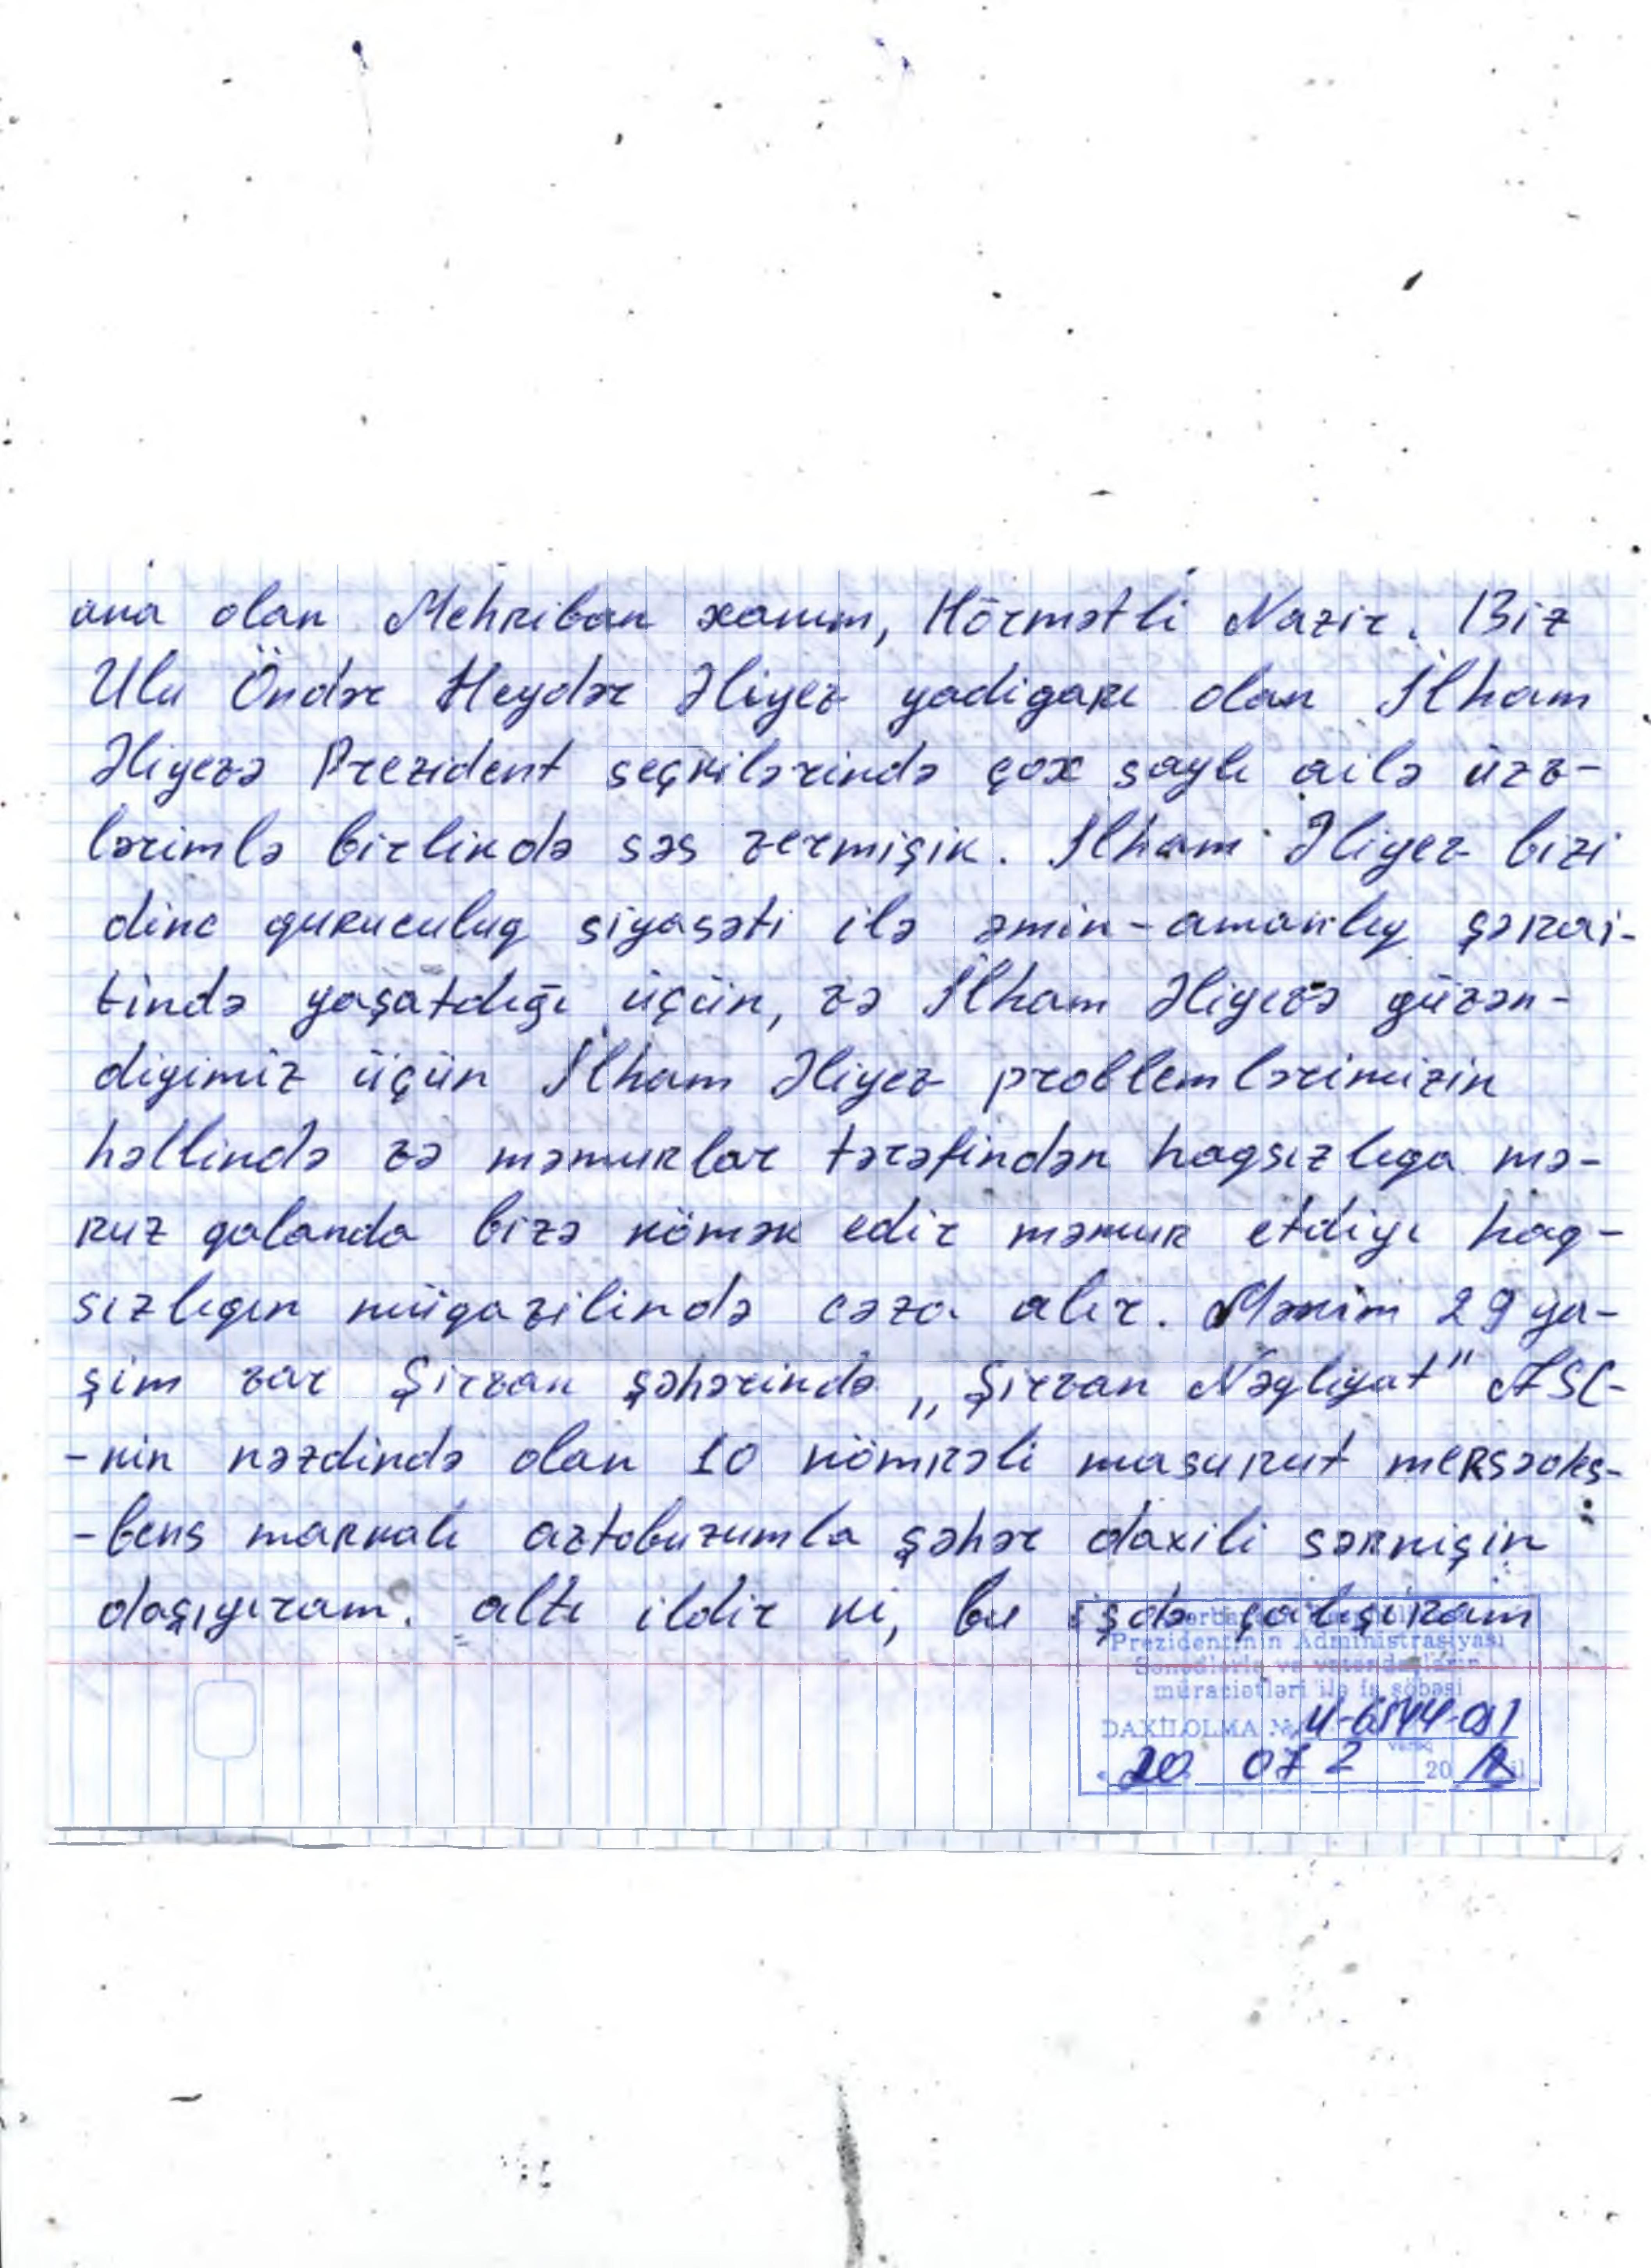 ana olan Mehriban xanım, Hörmətli Nazir. Biz
Ulu Öndər Heydər Əliyev yadigarı olan İlham
Əliyevə Prezident seçkilərində çox saylı ailə üzv-
lərimlə birlikdə səs vermişik. İlham Əliyev bizi
dinc quruculuq siyasəti ilə əmin-amanlıq şərai-
tində yaşatdığı üçün, və İlham Əliyevə güvən-
digimiz üçün İlham Əliyev problemlərimizin
həllində və məmurlar tərəfindən haqsızlıga mə-
ruz qalanda bizə kömək edir məmur etdiyi haq-
sızlıgın müqavilində cəza alır. Mənim 29 ya-
şim var Şirvan şəhərində „Şirvan Nəqliyat" ASC-
-nin nəzdində olan 10 nömrəli masurut mersedes-
-bens markalı avtobuzumla şəhər daxili sərnişin
daşıyıram. altı ildir ki, bu işdə çalışıram
Prezidentinin Administrasiyası
Sənədlərlə və vətəndaşların
müraciətləri ilə iş şöbəsi
DAXİLOLMA №
vərəq
20 07 2 20 il